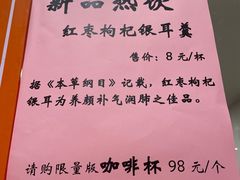 新品热饮
红枣枸杞银耳羹
售价：8 元/杯
据《本草纲目》记载，红枣枸杞
银耳为养颜补气润肺之佳品。
请购限量版咖啡杯 98 元/个